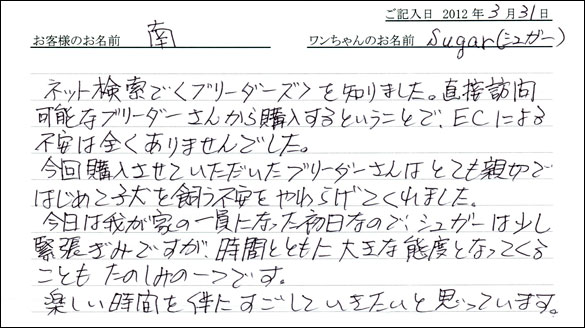 ご記入日 2012 年 3 月 31 日
お客様のお名前 南 ワンちゃんのお名前 Sugar(シュガー)
ネット検索で<ブリーダーズ>を知りました。直接訪問
可能なブリーダーさんから購入するということで、ECによる
不安は全くありませんでした。
今回購入させていただいたブリーダーさんはとても親切で
はじめて子犬を飼う不安をやわらげてくれました。
今日は我が家の一員になった初日なので、シュガーは少し
緊張ぎみですが、時間とともに大きな態度となってくる
こともたのしみの一つです。
楽しい時間を伴にすごしていきたいと思っています。